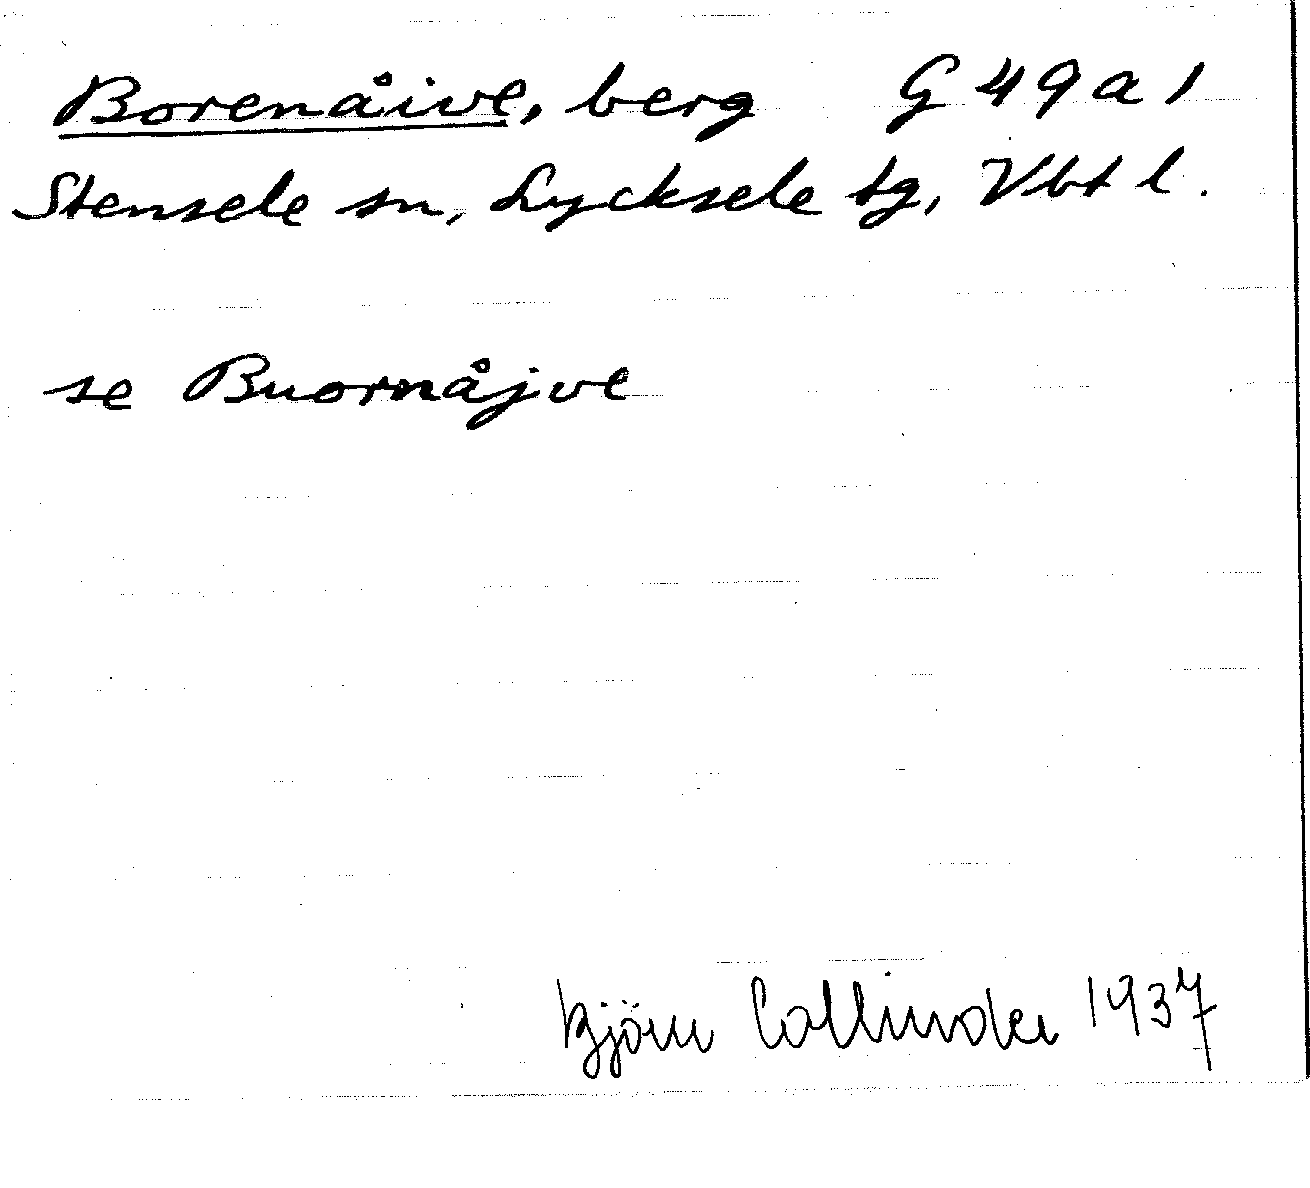 Borenåive, berg G 49 a 1
Stensele sn, Lycksele tg, Vbt l.
se Buornåjve
Björn Collinder 1937